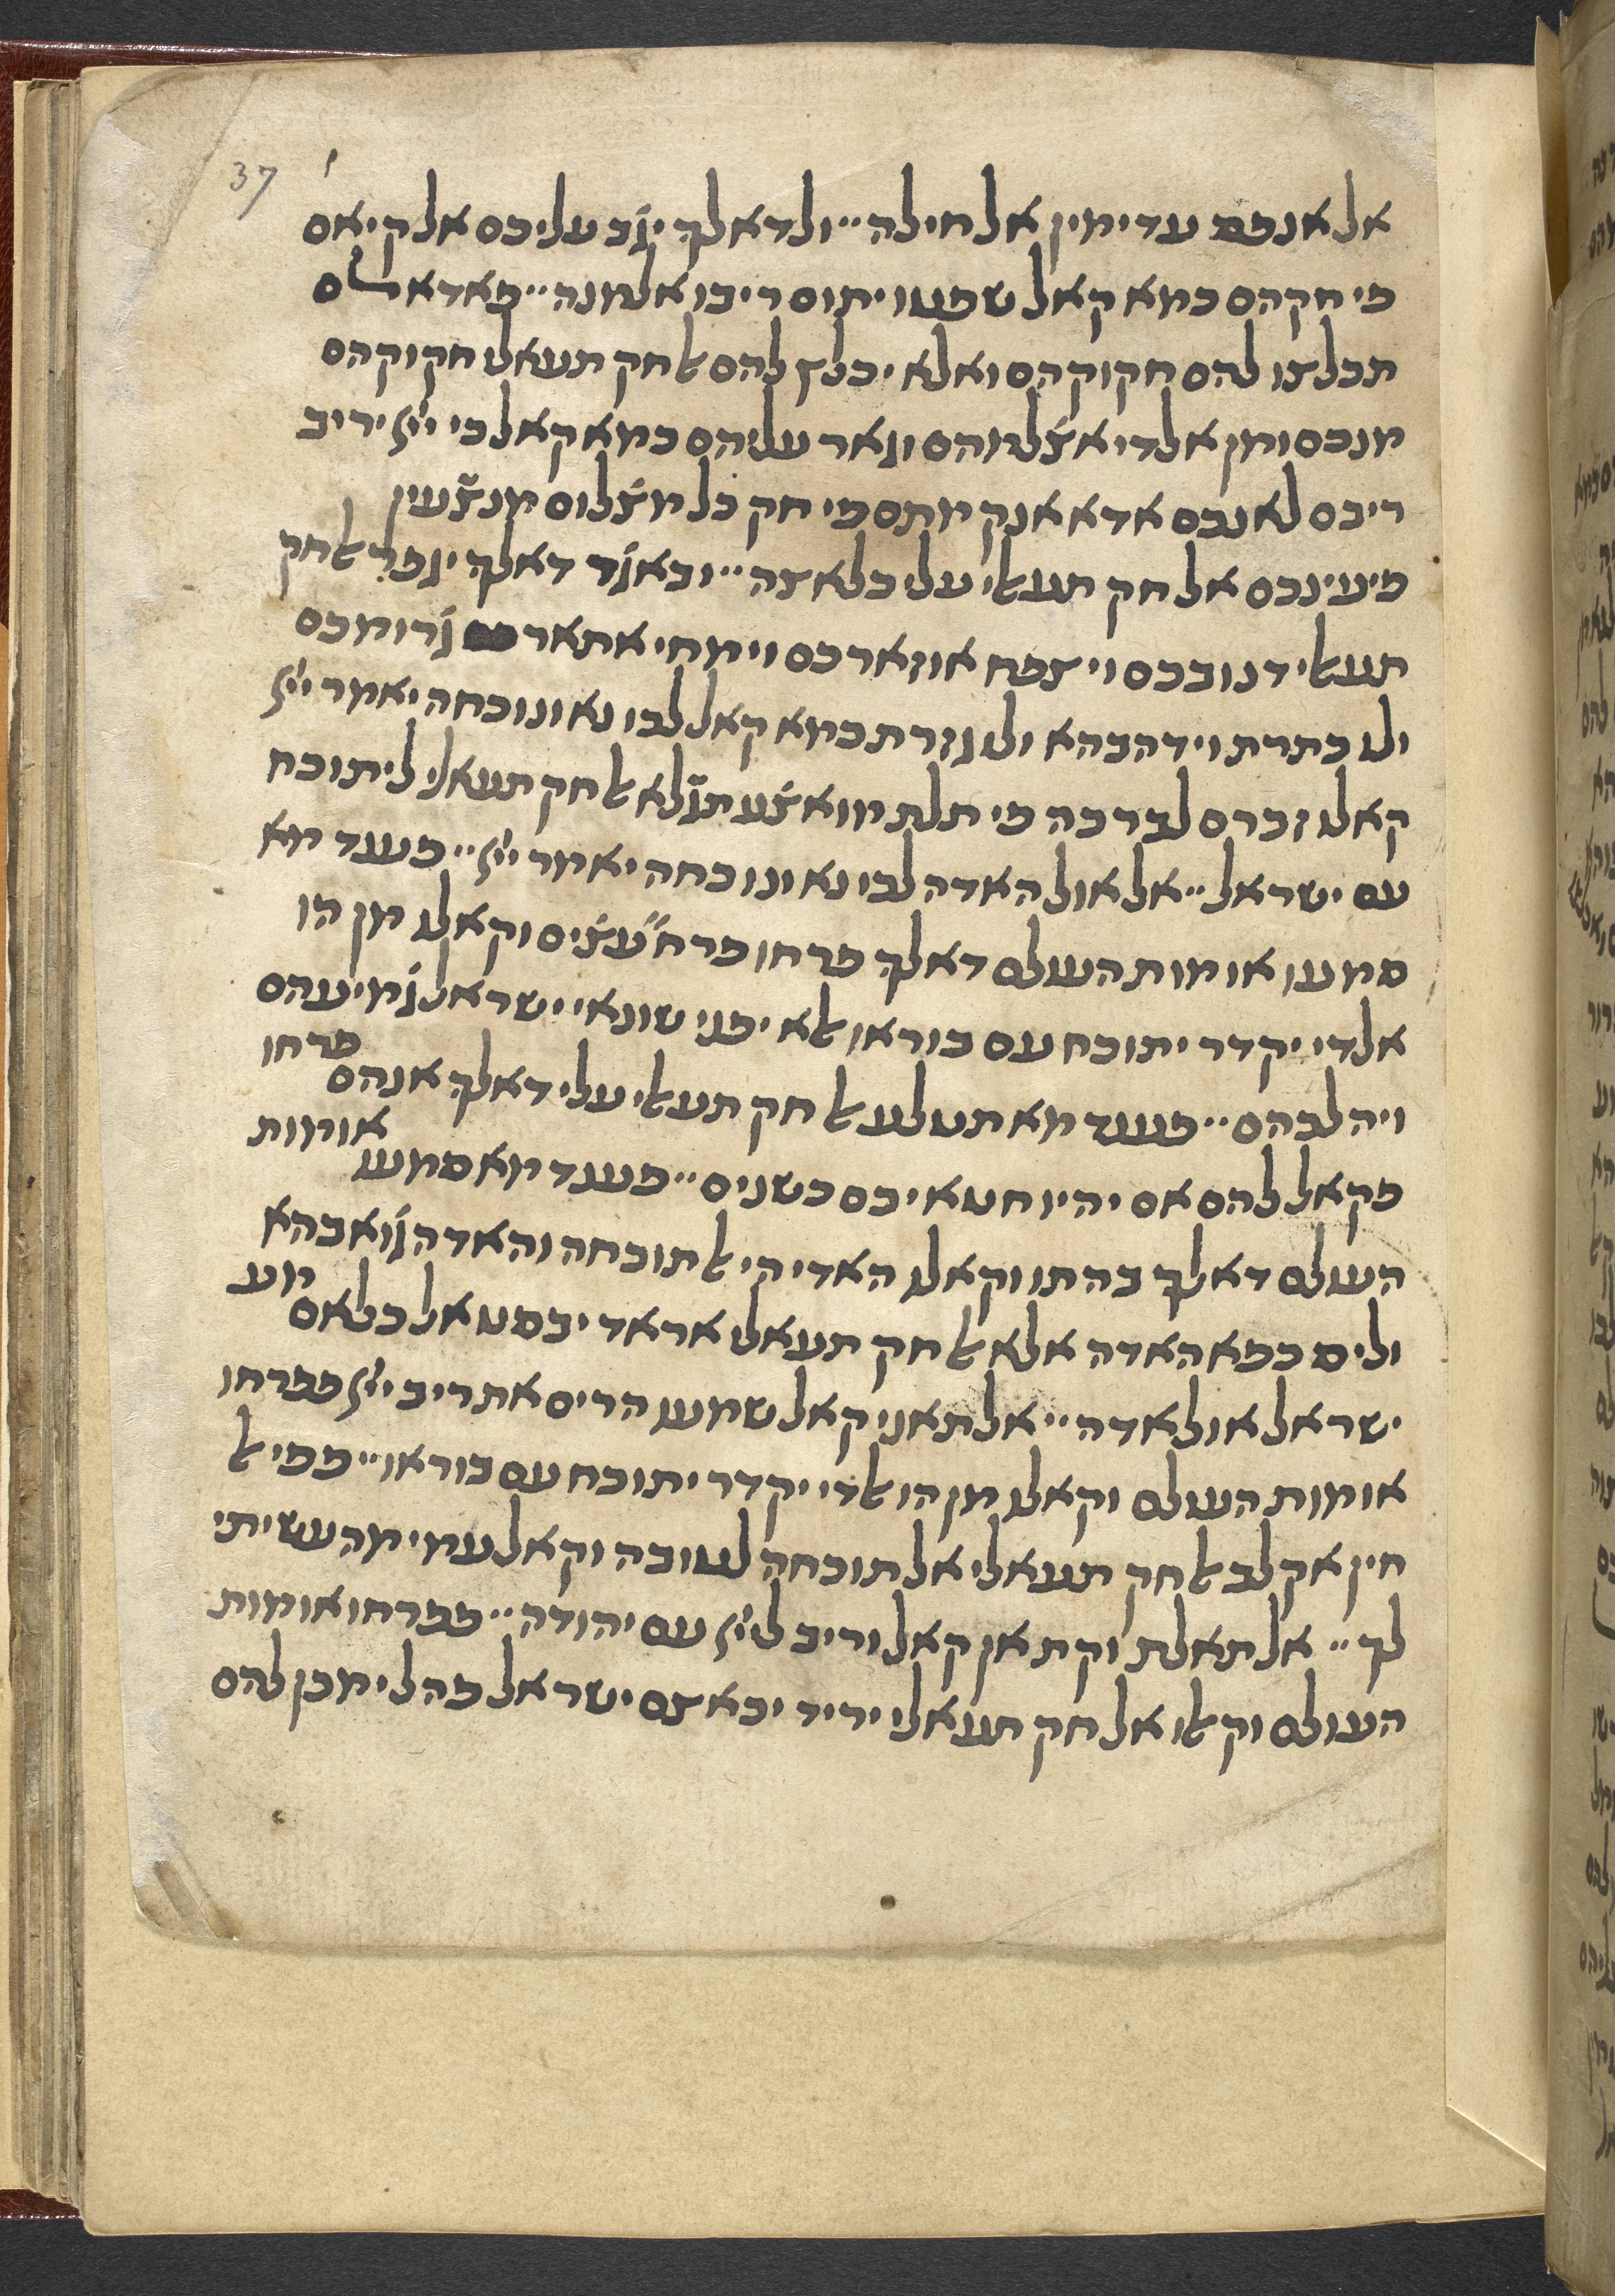 37
אל אנפס עדימין אל חילה״ ולדאלך יגׄב עליכם אל קיאם
פי חקהם כמא קאל שפטו יתום ריבו אלמנה״ פאדא לם
תכלצו להם חקוקהם ואלא יכלץ להם ﭏחק תעאלי חקוקהם
מנכם ומן אלדי אצׄלמוהם וגׄאר עליהם כמא קאל כי ייׄ יריב
ריבם לאנכם אדא אנקמתם פי חק כל מצׄלום מנצׄעין
פיעינכם אל חק תעﭏי עלי כלאצה״ ובאגׄר דאלך יגפר ﭏחק
תעﭏי דנובכם ויצפח אוזארכם וימחי אתאר גׄרומכם
ולו כתרת וידהבהא ולו גׄזרת כמא קאל לכו נא ונוכחה יאמר ייׄ
קאלו זכרם לברכה פי תלת מואצׄע תגׄלא ﭏחק תעאלי ליתוכח
עם ישראל״ אל אול האדה לכו נא ונוכחה יאמר ייׄ״ פעגד מא
סמעו אומות העולם דאלך פרחו פרח״ עצׄים וקאלו מן הו
אלדי יקדר יתוכח עם בוראו ﭏא יפני שונאי ישראל גׄמיעהם
ויהלכהם״ פענד מא תטלע ﭏחק תעﭏי עלי דאלך אנהם פרחו
פקאל להם אם יהיו חטאיכם כשנים״ פענד מא סמעו אומות
העולם דאלך בהתו וקאלו האדי הי ﭏתוכחה והאדה גׄואבהא
וליס כפא האדה אלא ﭏחק תעאלי אראד יבסט אל כלאם מע
ישראל אולאדה״ אל תאני קאל שמעו הרים את ריב ייׄ ففרחו
אומות העולם וקאלו מן הו ﭏדי יקדר יתוכח עם בוראו״ פפי ﭏ
חין אקלב ﭏחק תעאלי אל תוכחה לטובה וקאל עמי מה עשיתי
לך״ אל תאלת וקת אן קאל וריב לייׄ עם יהודה״ פפרחו אומות
העולם וקﭏו אל חק תעאלי יריד יכאצם ישראל פהל ימכן להם